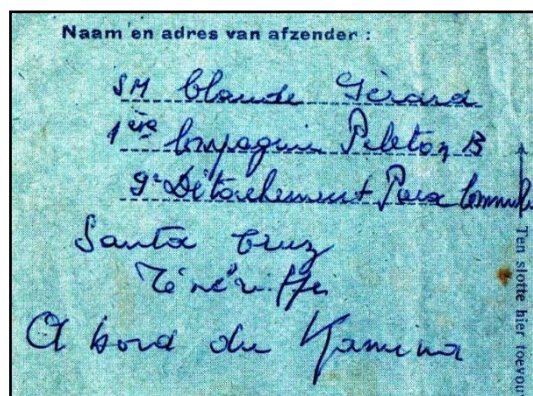 Naam en adres van afzender :
SM Claude Gérard
1ère Compagnie Peloton B
9e Détachement Para Comman
Santa Cruz
Ténériffe
A bord du Kamina
Ten slotte hier toevou